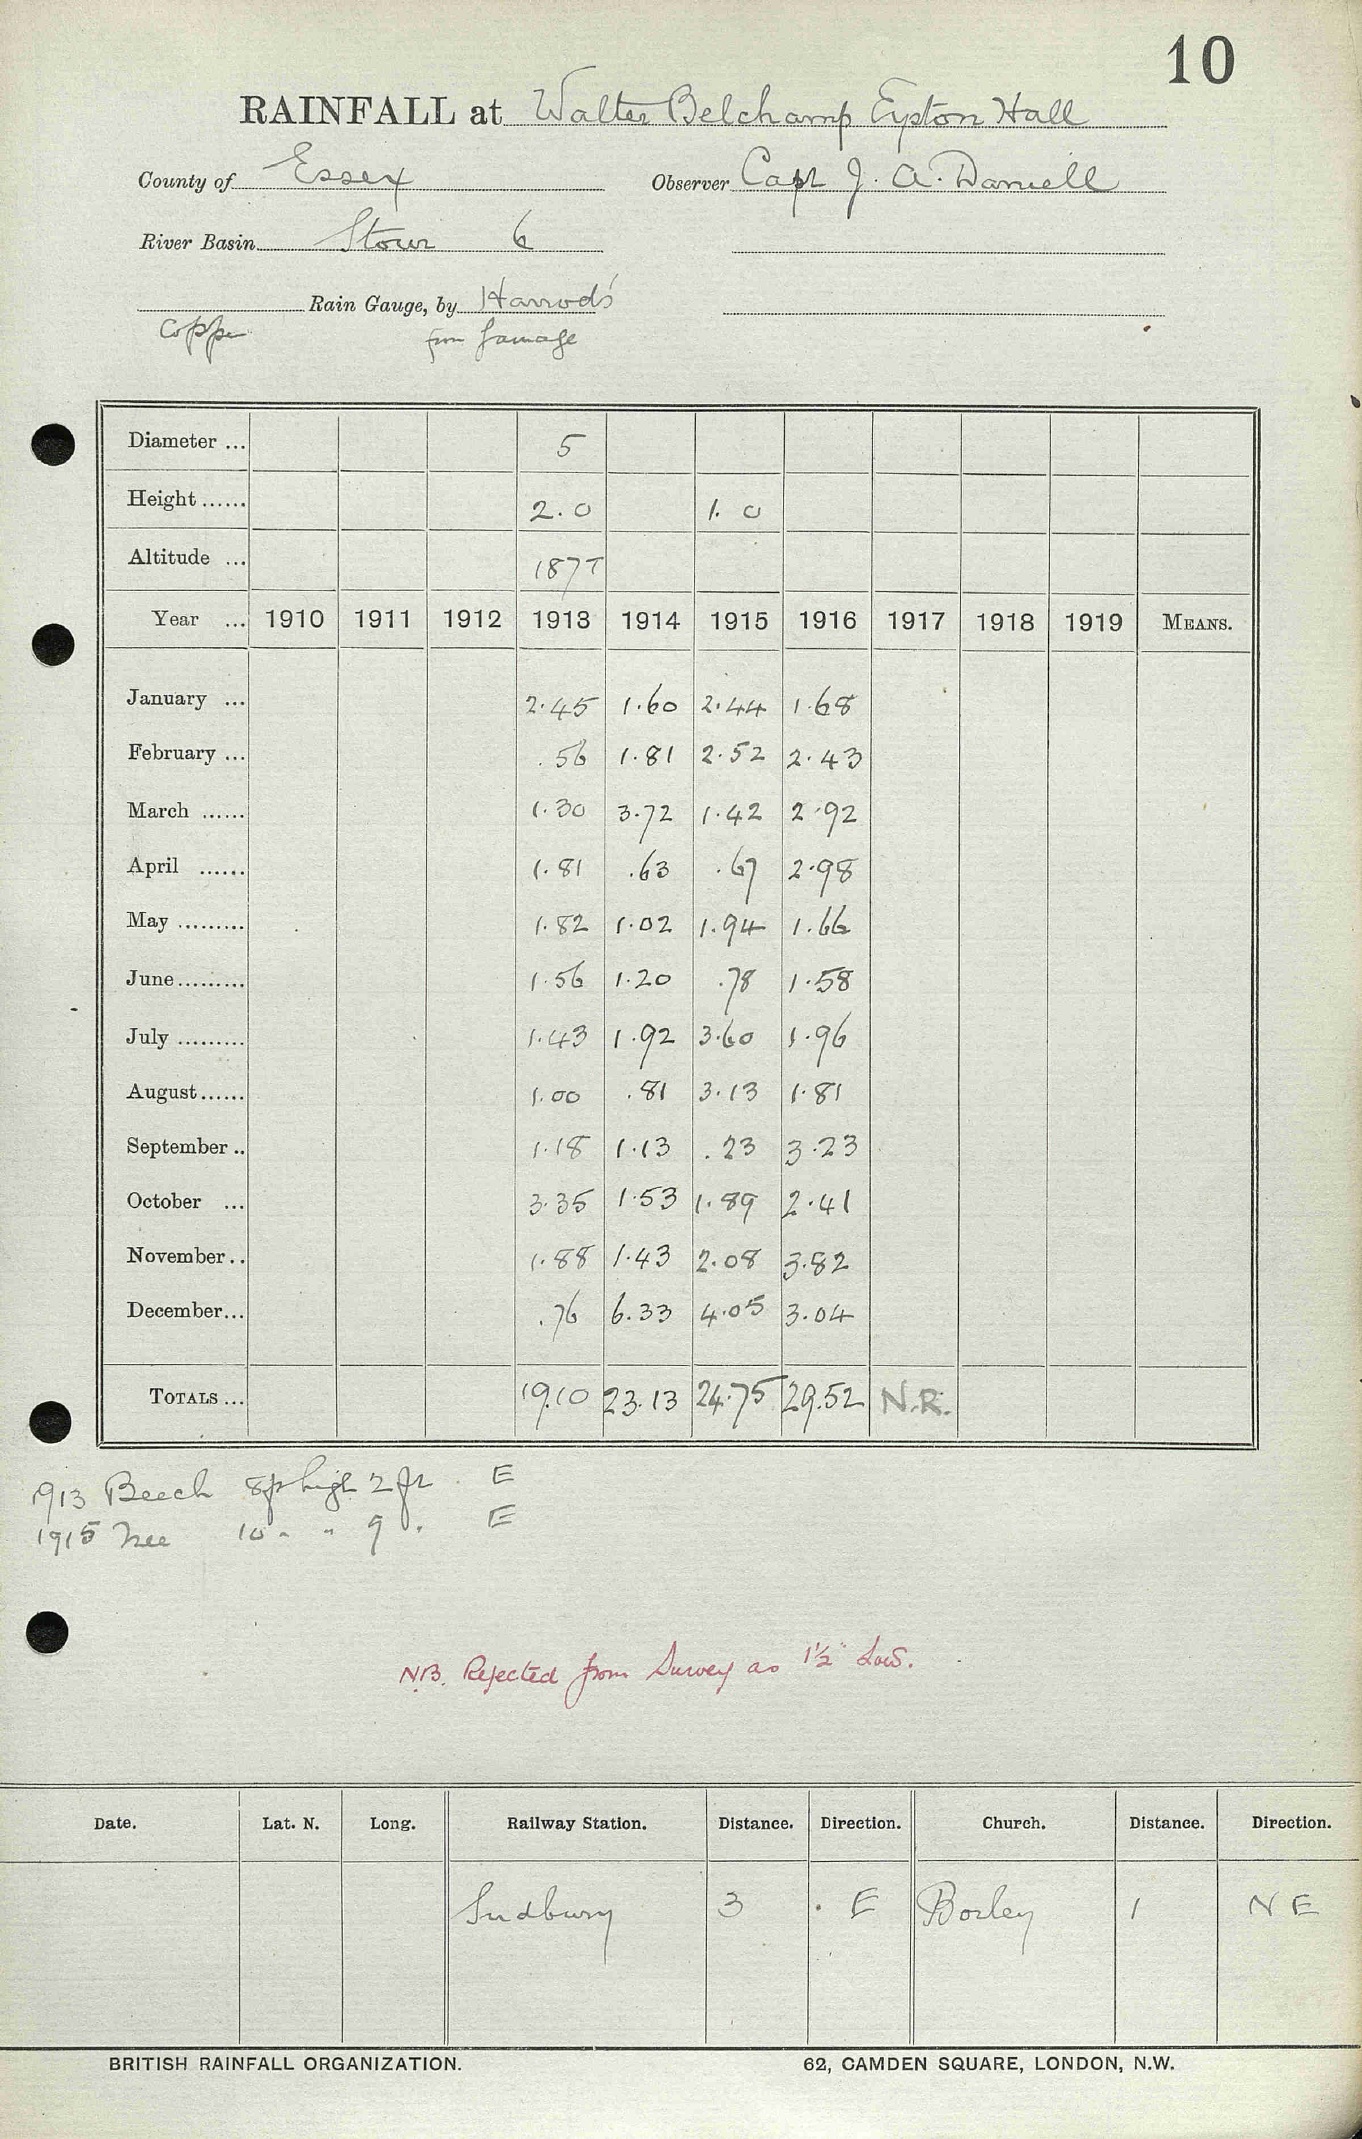 10
RAINFALL at Walter Belchamp Eyston Hall
County of Essex Observer Capt J. A. Daniell
River Basin Stour 6
Rain Gauge, by Harrods'
Copper from Gamage
Diameter ... 5
Height ...... 2.0 1.0
Altitude ... 187T
Year ... 1910 1911 1912 1913 1914 1915 1916 1917 1918 1919 MEANS.
January ... 2.45 1.60 2.44 1.68
February ... .56 1.81 2.52 2.43
March ...... 1.30 3.72 1.42 2.92
April ...... 1.81 .63 .67 2.98
May ......... 1.82 1.02 1.94 1.66
June ......... 1.56 1.20 .78 1.58
July ......... 1.43 1.92 3.60 1.96
August ...... 1.00 .81 3.13 1.81
September .. 1.18 1.13 .23 3.23
October ... 3.35 1.53 1.89 2.41
November .. 1.88 1.43 2.08 3.82
December ... .76 6.33 4.05 3.04
TOTALS ... 19.10 23.13 24.75 29.52 N.R.
1913 Beech 8ft high 2 ft . E
1915 Tree 10 " " 9 " E
NB. Rejected from Survey as 1½" Low.
Date. Lat. N. Long. Railway Station. Distance. Direction. Church. Distance. Direction.
Sudbury 3 . E Borley 1 NE
BRITISH RAINFALL ORGANIZATION. 62, CAMDEN SQUARE, LONDON, N.W.